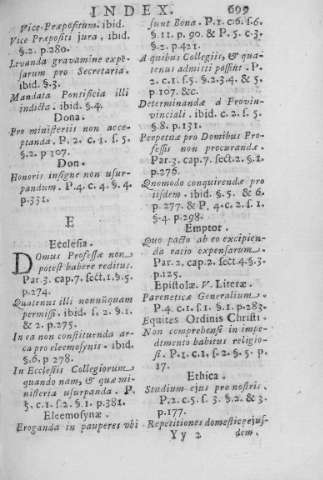 INDEX. 699
Vice-Præpositum. ibid.
Vice Præpositi jura. ibid.
§.2. p.280.
Levanda gravamine expe-
sarum pro Secretaria.
ibid. §.3.
Mandata Pontificia illi
indicta. ibid. §.4.
Dona.
Pro ministeriis non acce-
ptanda. P. 2. c. 1. s. 5.
§.2. p 107.
Don.
Honoris insigne non usur-
pandum. P.4. c. 4. §. 4.
p.331.
E
Ecclesia.
Domus Professæ non
potest habere reditus.
Par. 3. cap.7. sect.1.§.5.
p.274.
Quatenus illi nonnūquam
permissi. ibid. s. 2. §.1.
& 2. p.275.
In ea non constituenda ar-
ca pro eleemosynis. ibid.
§.6. p 278.
In Ecclesiis Collegiorum
quando nam, & quæ mi-
nisteria usurpanda. P.
5. c.1. s.2. §.1. p.381.
Eleemosynæ.
Eroganda in pauperes ubi
sunt Bona. P.1. c.6. s.6.
§.11. p. 90. & P.5. c.3.
§.2. p.421.
A quibus Collegiis, & qua-
tenus admitti possint. P.
2. c.1. s.5. §.2.3.4. & 5.
p 107. &c.
Determinandæ a Provin-
vinciali. ibid. c.2. s.5.
§.8. p.131.
Perpetuæ pro Domibus Pro-
fessis non procurandæ.
Par.3. cap.7. sect.2. §.2.
p.276.
Quomodo conquirendæ pro
iisdem. ibid. §.5. & 6.
p.277. & P. 4.c.2. s.1.
§.4. p.298.
Emptor.
Quo pacto ab eo excipien-
da ratio expensarum.
Par.2. cap.2. sect.4.§.3.
p.125.
Epistolæ. V. Literæ.
Pareneticæ Generalium.
P.4. c.1. s.1. §.1. p.283.
Equites Ordinis Christi.
Non comprehensi in impe-
dimento habitus religio-
si. P.1. c.1. s.2. §.5. p.
17.
Ethica.
Studium ejus pro nostris.
P.2. c.5. s.3. §.2. & 3.
p.177.
Repetitiones domesticæ ejus-
Yy 2 dem.